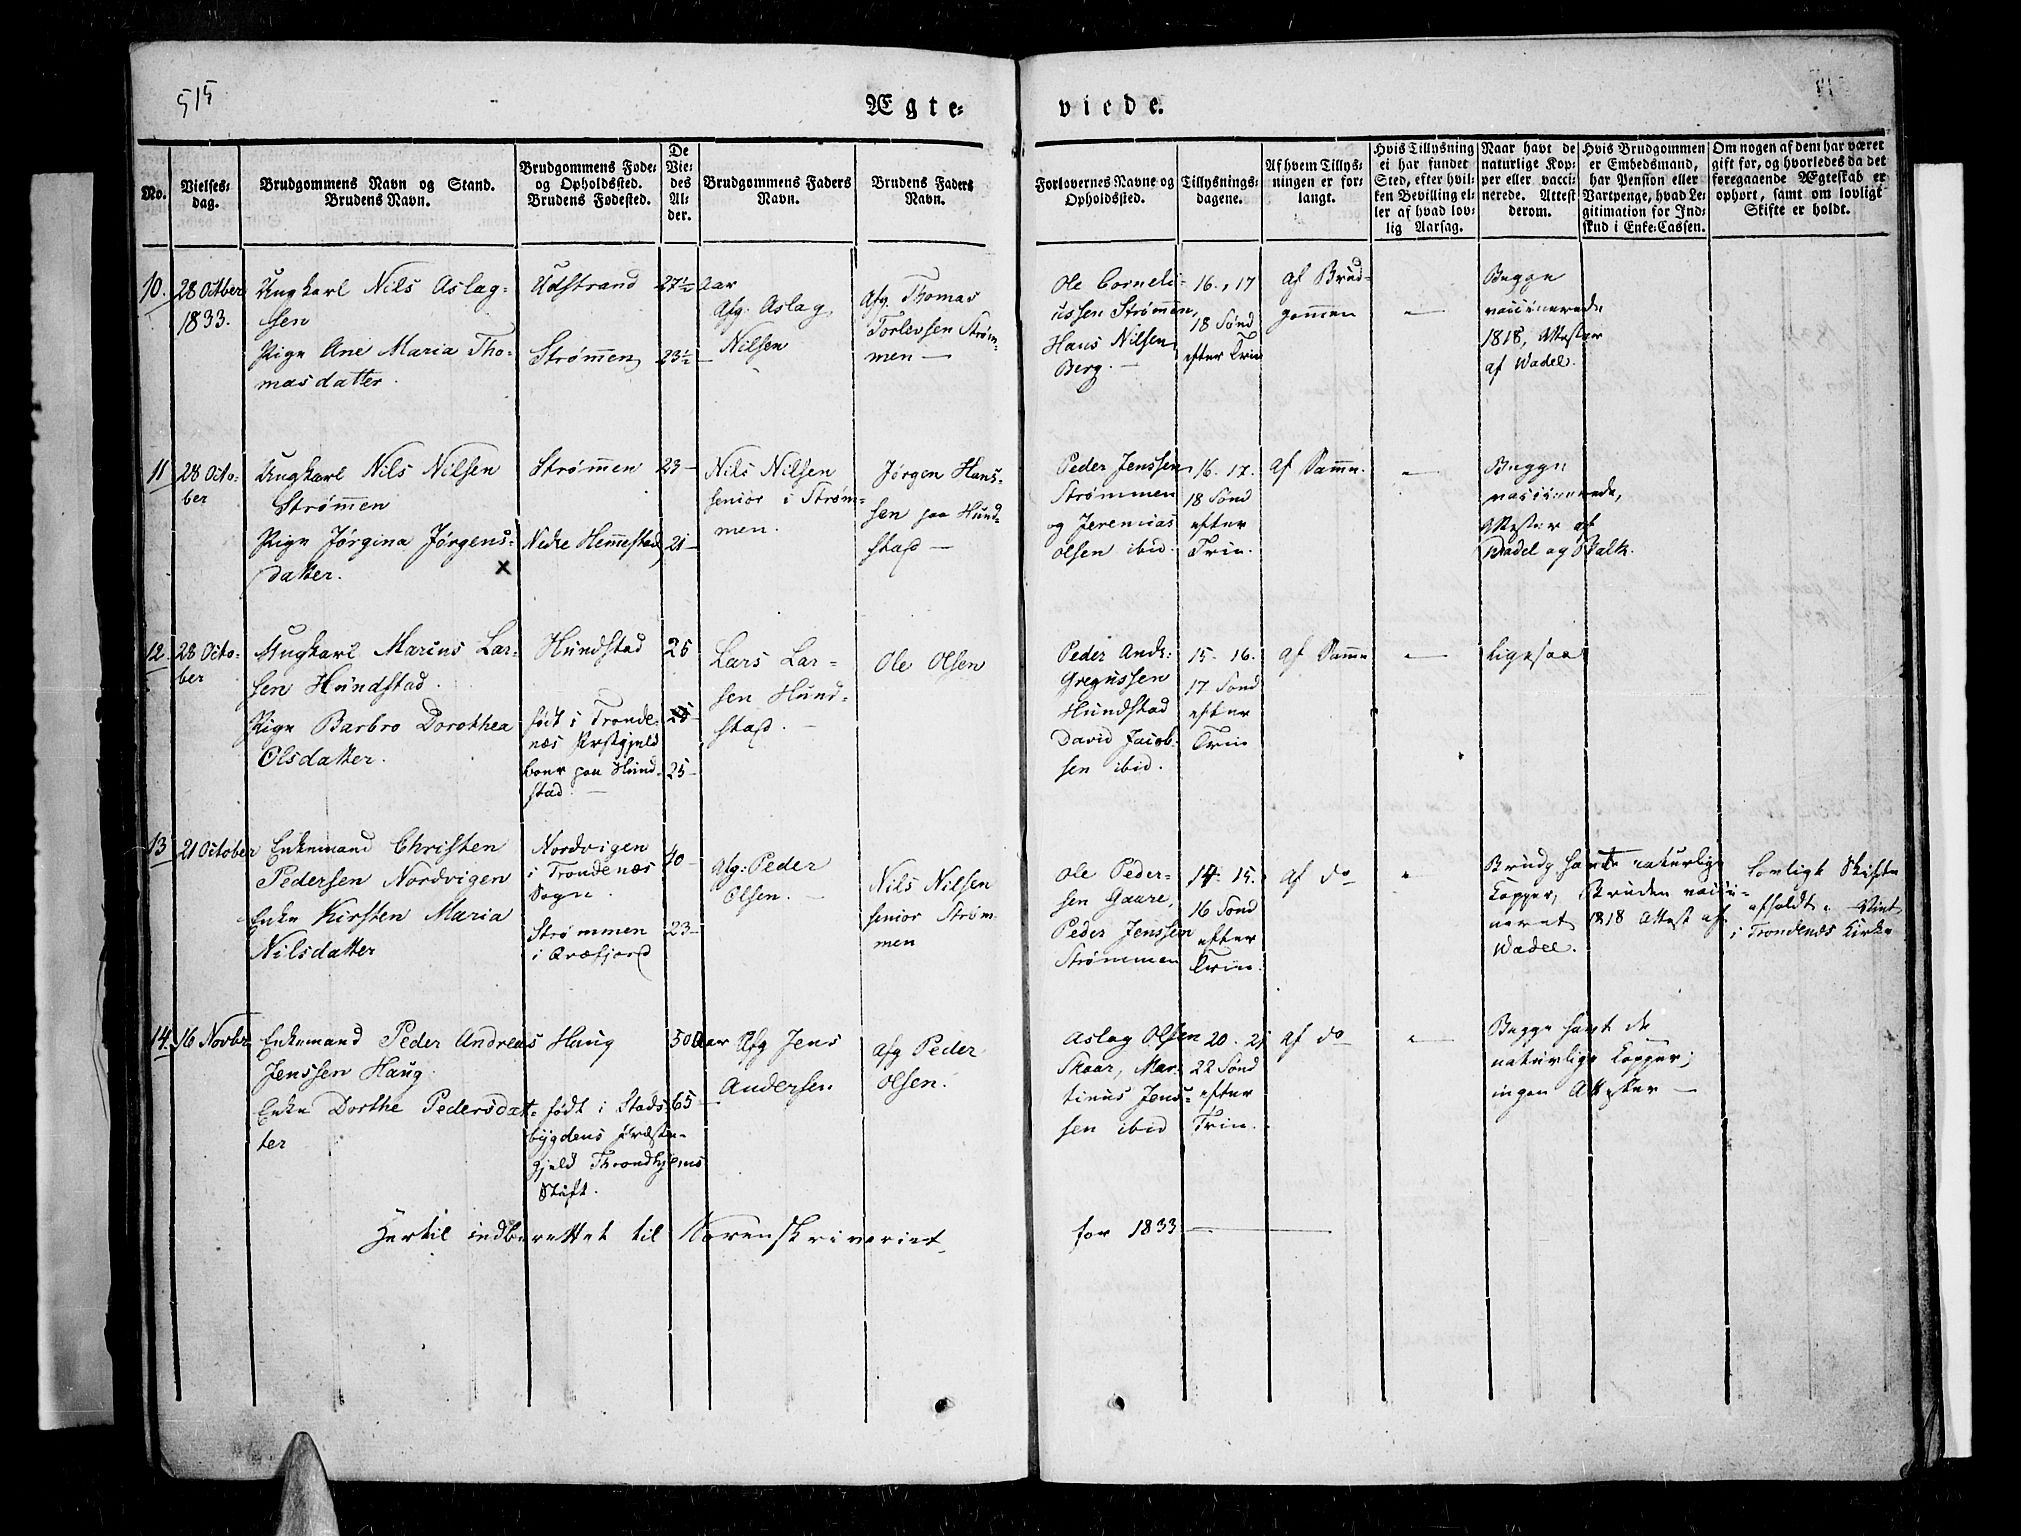 515
Ægte-
viede.
No.
Vielses-
dag.
Brudgommens Navn og Stand.
Brudens Navn.
Brudgommens Føde-
og Opholdssted.
Brudens Fødested.
De
Vie-
des
Al-
der.
Brudgommens Faders
Navn.
Brudens Faders
Navn.
Forlovernes Navne og
Opholdssted.
Tillysnings-
dagene.
Af hvem Tillys-
ningen er for-
langt.
Hvis Tillysning
ei har fundet
Sted, efter hvil-
ken Bevilling el-
ler af hvad lov-
lig Aarsag.
Naar havt de
naturlige Kop-
per eller vacci-
nerede. Attest
derom.
Hvis Brudgommen
er Embedsmand,
har Pension eller
Vartpenge, hvad Le-
gitimation for Ind-
skud i Enke-Cassen.
Om nogen af dem har været
gift før, og hvorledes da det
foregaaende Ægteskab er
ophørt, samt om lovligt
Skifte er holdt.
10.
28 Octber
1833.
Ungkarl Nils Aslag-
sen
Pige Ane Maria Tho-
masdatter.
Udstrand
Strømmen
27½ Aar
23½ —
Afg. Aslag
Nilsen
Afg. Thomas
Torlevsen Strøm-
men —
Ole Corneli-
ussen Strømmen,
Hans Nilsen
Berg. —
16., 17
18 Sønd
efter Trin
af Brud-
gommen
—
Begge
vaccinerede
1818, Attester
af Wadel.
11
28 Octo-
ber
Ungkarl Nils Nilsen
Strømmen
Pige Jørgina Jørgens-
datter. x
Strømmen
Nedre Hemmestad
23 —
21 —
Nils Nilsen
senior i Strøm-
men.
Jørgen Hans-
sen paa Hund-
stad —
Peder Jenssen
Strømmen
og Jeremias
Olsen ibid.
16. 17.
18 Sønd
efter
Trin.
af Samme.
—
Begge
vaccinerede,
Attester af
Wadel og Balk.
12.
28 Octo-
ber
Ungkarl Marius Lar-
sen Hundstad.
Pige Barbro Dorothea
Olsdatter.
Hundstad
født i Tronde-
næs Præstgjeld
boer paa Hund-
stad. —
25
25 —
Lars Lar-
sen Hund-
stad. —
Ole Olsen
Peder Andr:
Gregussen
Hundstad
David Jacob-
sen ibid.
15. 16.
17 Sønd
efter
Trin
af Samme
—
ligesaa
13
21 October
Enkemand Christen
Pedersen Nordvigen
Enke Kirsten Maria
Nilsdatter
Nordvigen
i Trondenæs
Sogn.
Strømmen
i Qvæfjord
40 —
23 —
Afg: Peder
Olsen. —
Nils Nilsen
senior Strøm-
men
Ole Peder-
sen Gaare,
Peder Jenssen
Strømmen
14. 15.
16 Sønd
efter
Trin.
af do
Brudg havt naturlige
Kopper, Bruden vacci-
neret 1818 Attest af
Wadel.
Lovligt Skifte
afholdt. Viet
i Trondenæs Kirke
14.
16 Novbr
Enkemand Peder Andreas
Jenssen Haug.
Enke Dorthe Pedersdat-
ter
Haug
født i Stads-
bygdens Præste-
gjeld Throndhjems
Stift.
50 Aar
65 —
Afg Jens
Andersen
afg Peder
Olsen.
Aslag Olsen
Skaar, Mar-
tinus Jens-
sen ibid
20. 21
22 Sønd
efter
Trin.
af do
—
Begge havt de
naturlige Kopper;
ingen Attester —
Hertil indberettet til Sorenskriveriet
for 1833 —